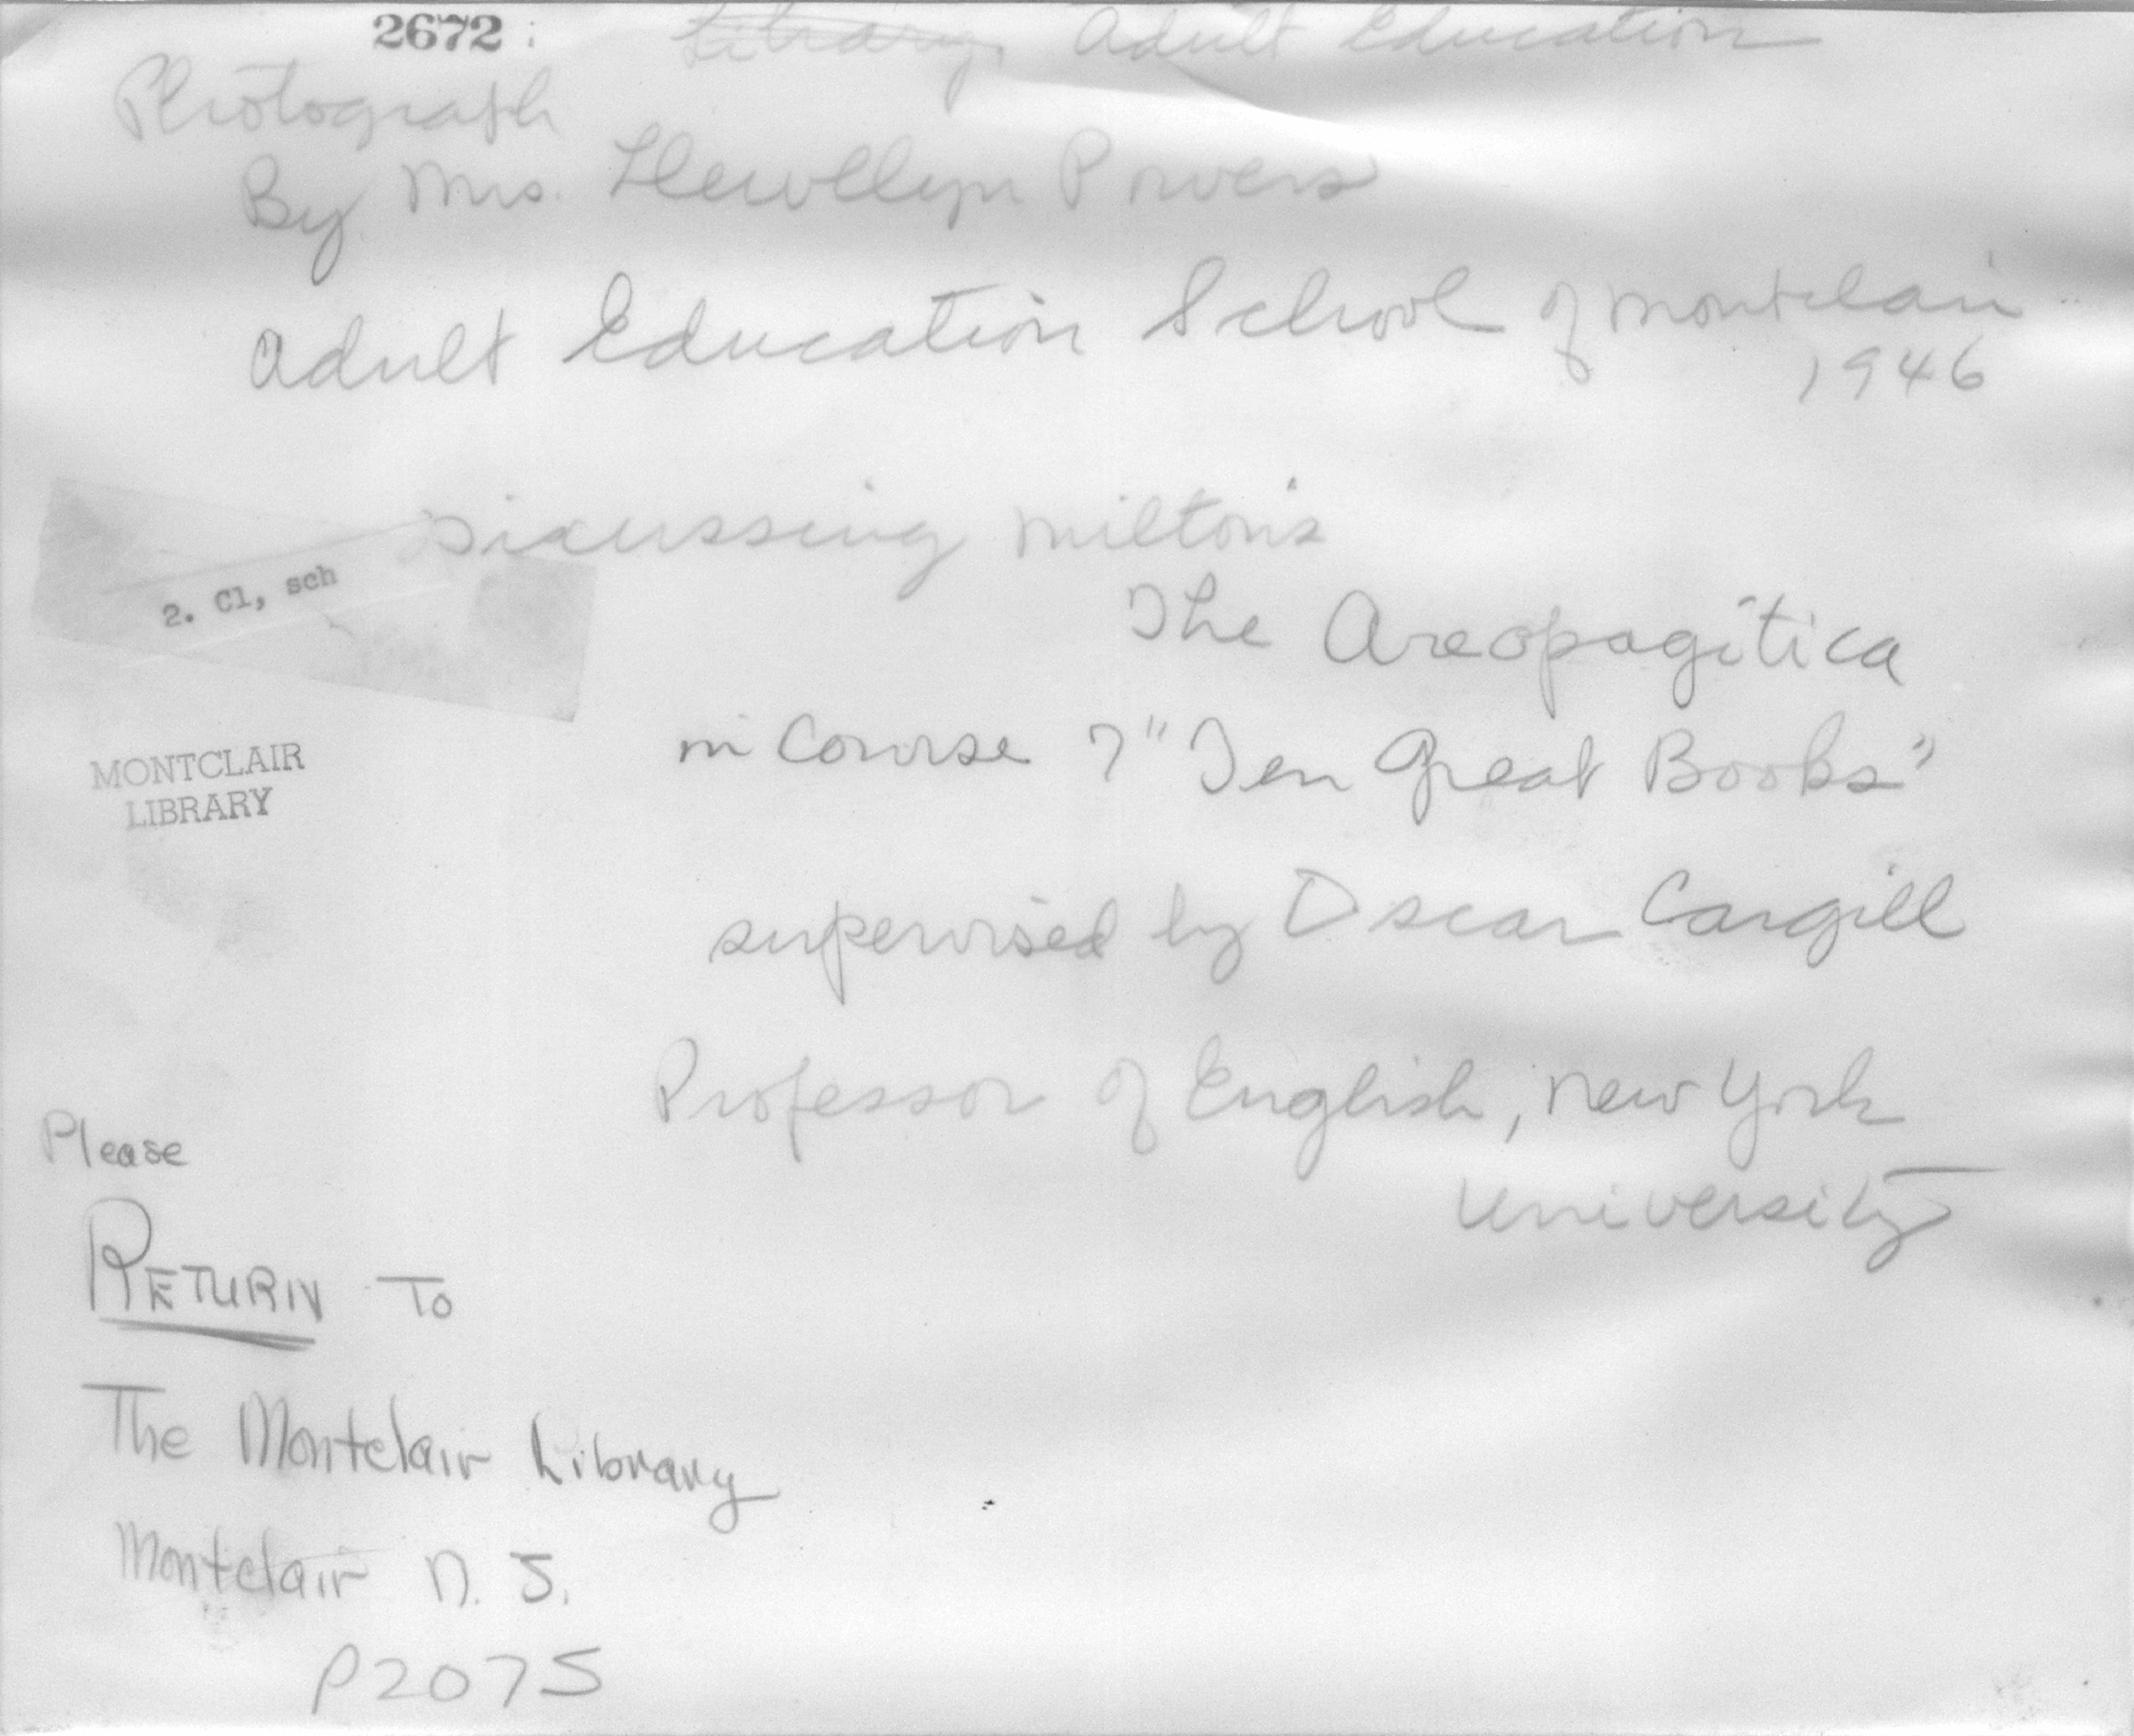 2672:
Library, Adult Education
Photograph
By Mrs. Llewellyn Powers
Adult Education School of Montclair
1946
Dicussing Milton's
2. Cl, sch
The Areopagitica
in Course of "Ten Great Books"
MONTCLAIR
LIBRARY
supervised by Oscar Cargill
Professor of English, New York
University
Please
RETURN To
The Montclair Library
Montclair N. J.
P2075